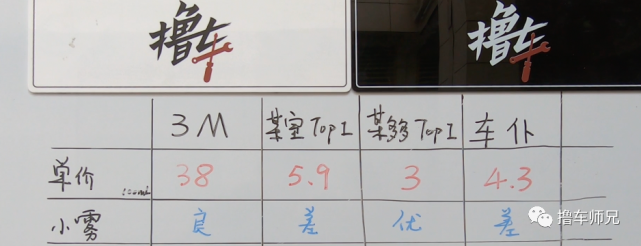 撸车
撸车
3M 某宝Top1 某多Top1 车仆
单价 38 5.9 3 4.3
小雾 良 差 优 差
撸车师兄